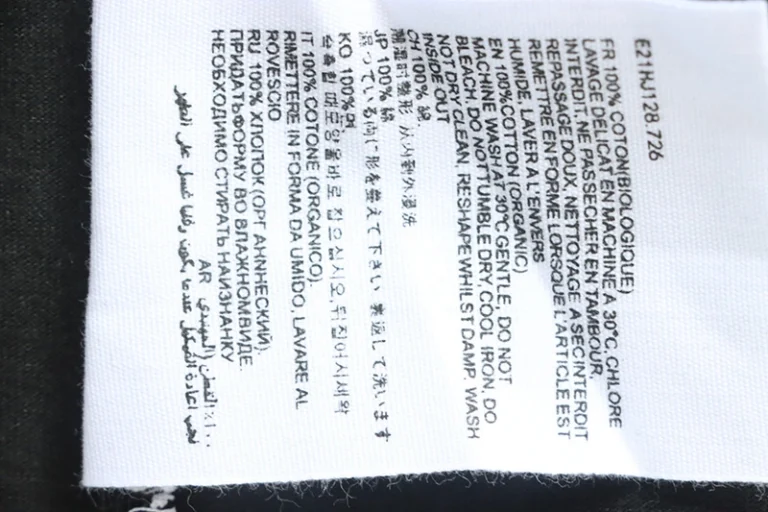 E21HJ128.726
FR 100% COTON(BIOLOGIQUE)
LAVAGE DELICAT EN MACHINE A 30°C. CHLORE
INTERDIT. NE PASSECHER EN TAMBOUR.
REPASSAGE DOUX, NETTOYAGE A SEC INTERDIT
REMETTRE EN FORME LORSQUE L'ARTICLE EST
HUMIDE, LAVER A L'ENVERS
EN 100%COTTON (ORGANIC)
MACHINE WASH AT 30°C GENTLE, DO NOT
BLEACH, DO NOT TUMBLE DRY, COOL IRON, DO
NOT DRY CLEAN, RESHAPE WHILST DAMP. WASH
INSIDE OUT
CH 100% 綿.
潮湿时整形 从内到外浸洗
JP 100% 綿
湿っている内に形を整えて下さい 裏返して洗います
KO 100%면
습윤할 때모양을바로 잡으십시오,뒤집어서세탁
IT 100% COTONE (ORGANICO).
RIMETTERE IN FORMA DA UMIDO, LAVARE AL
ROVESCIO
RU 100% ХЛОПОК (ОРГАННЧЕСКИЙ).
ПРИДАТЬ ФОРМУ ВО ВЛАЖНОМ ВИДЕ.
НЕОБХОДИМО СТИРАТЬ НАИЗНАНКУ
AR
١٠٠٪ القطن
يجب اعادة التشكيل عندما يكون رطبا غسل على الظهر